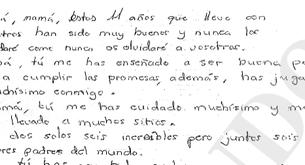 á, mamá, estos 11 años que llevo con
tros han sido muy buenos y nunca los
daré como nunca os olvidaré a vosotros.
á, tú me has enseñado a ser buena pe
a cumplir las promesas, además, has jug
chísimo conmigo.
má, tú me has cuidado muchísimo y m
llevado a muchos sitios.
dos solos seis increíbles pero juntos sois
res padres del mundo.